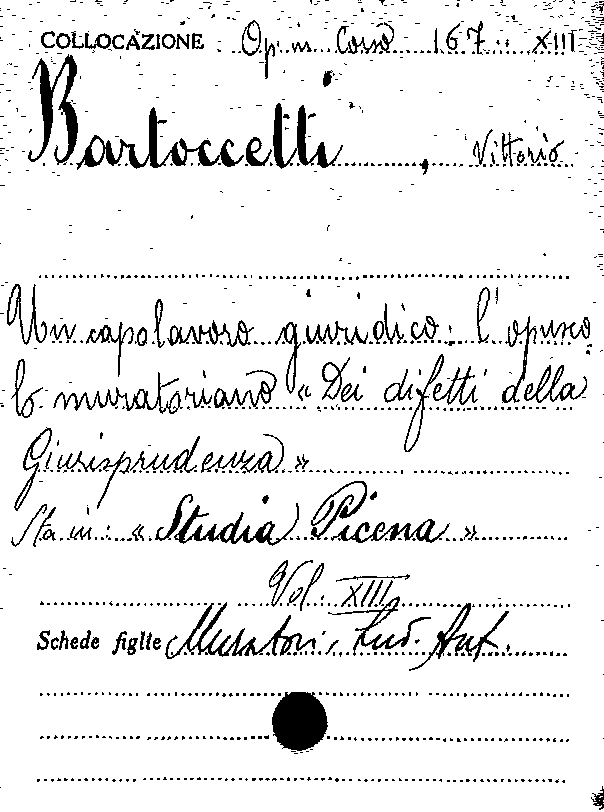 COLLOCAZIONE Op. in Corso 167. XIII
Bartoccetti, Vittorio
Un capolavoro giuridico: l'opusco
lo muratoriano « Dei difetti della
Giurisprudenza »
Sta in: « Studia Picena »
Vol. XIII
Schede figlie Muratori, Lud. Ant.